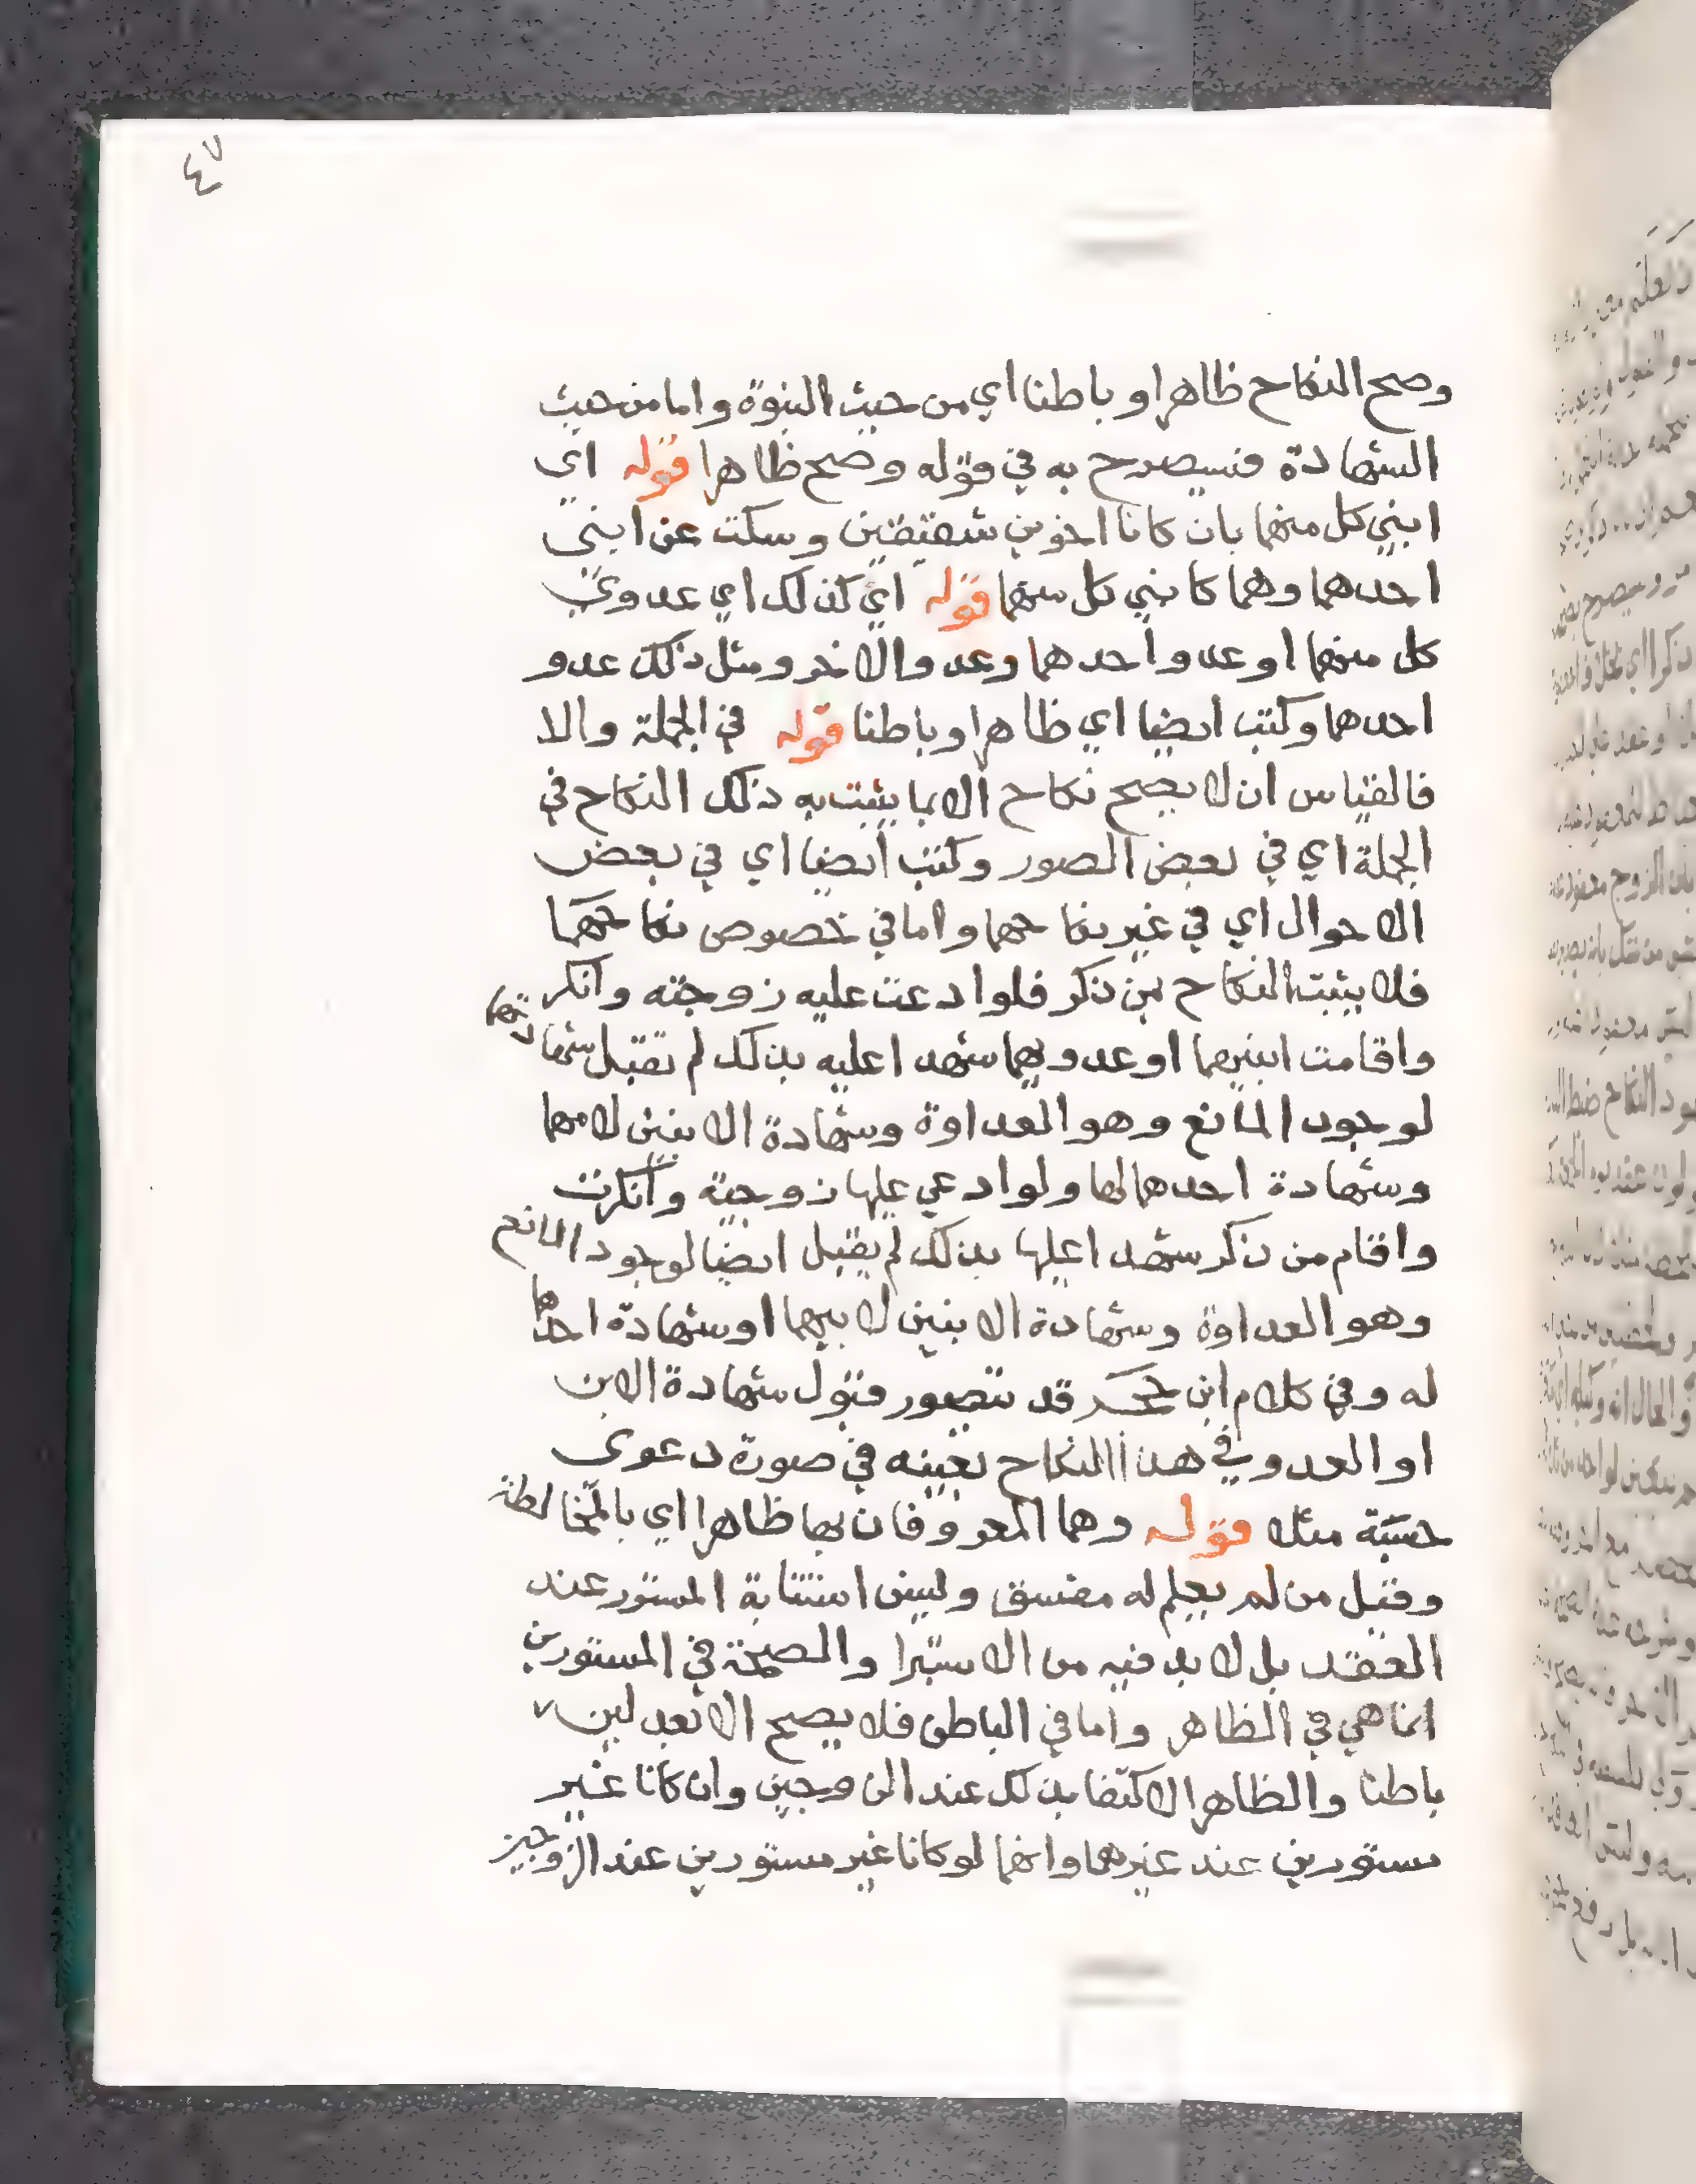 ٤٧
وصح النكاح ظاهرا وباطنا اي من حيث البنوة واما من حيث
الشهادة فسيصرح به في قوله وصح ظاهرا قوله اي
ابني كل منهما بان كانا اخوين شقيقين وسكت عن ابني
احدهما وهما كابني كل منهما قوله اي كذلك اي عدوي
كل منهما او عدو احدهما وعدو الاخر ومثل ذلك عدو
احدهما وكتب ايضا اي ظاهرا وباطنا قوله في الجملة والا
فالقياس ان لا يصح نكاح الا بما يثبت به ذلك النكاح في
الجملة اي في بعض الصور وكتب ايضا اي في بعض
الاحوال اي في غير نكاحهما واما في خصوص نكاحهما
فلا يثبت النكاح بمن ذكر فلو ادعت عليه زوجته وانكر
واقامت ابنيهما او عدويهما شهدا عليه بذلك لم تقبل شهادتهما
لوجود المانع وهو العداوة وشهادة الابنين لامهما
وشهادة احدهما لها ولو ادعي عليها زوجية وانكرت
واقام من ذكر شهدا عليها بذلك لم يقبل ايضا لوجود المانع
وهو العداوة وشهادة الابنين لابيهما او شهادة احدهما
له وفي كلام ابن حجر قد يتصور قبول شهادة الابن
او العدو في هذا النكاح بعينه في صورة دعوى
حسبة مثلا قوله وهما المعروفان بها ظاهرا اي بالمخالطة
وقيل من لم يعلم له مفسق وليس استتابة المستور عند
العقد بل لا بد فيه من الاستبرا والصحة في المستورين
انما هي في الظاهر واما في الباطن فلا يصح الا بعدلين
باطنا والظاهر الاكتفا بذلك عند الزوجين وان كانا غير
مستورين عند غيرهما وانهما لو كانا غير مستورين عند الزوجين